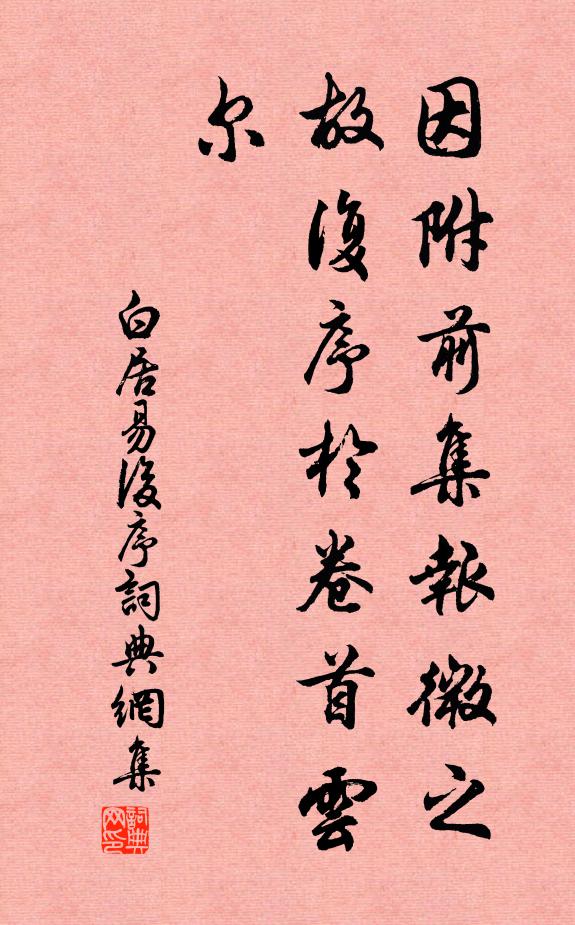 因附前集報微之
故復序於卷首雲
尔
白居易後序詞典網集
詞典
网印